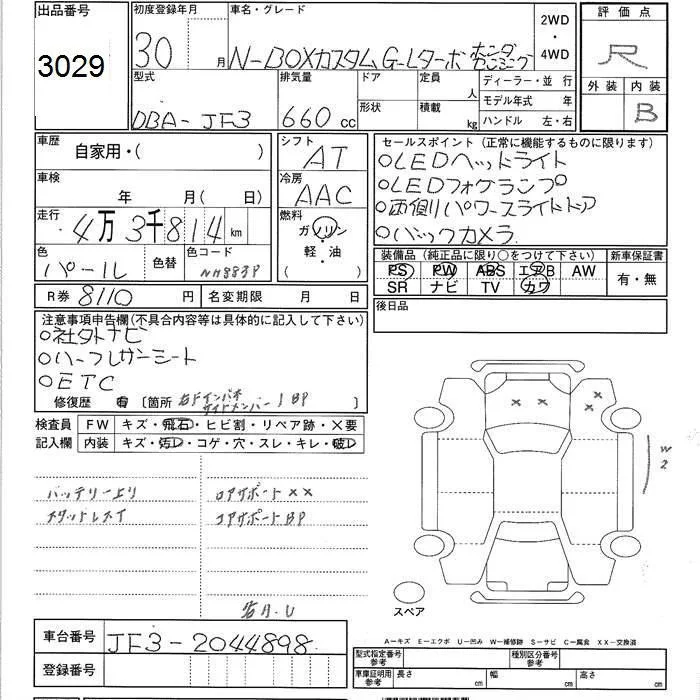 出品番号
3029
初度登録年月
30 月
車名・グレード
N-BOXカスタム G・Lターボ ホンダ
2WD
・
4WD
評価点
R
外装 内装
B
型式
DBA-JF3
排気量
660 cc
ドア
形状
定員 人
積載 kg
ディーラー・並行
モデル年式 年
ハンドル 左・右
車歴
自家用・( )
車検
年 月( 日)
走行
4万3千814 km
色
パール
色替
色コード
NH883P
シフト
AT
冷房
AAC
燃料
ガソリン
・
軽・油
( )
セールスポイント(正常に機能するものに限ります)
○LEDヘッドライト
○LEDフォグランプ
○両側パワースライドドア
○バックカメラ
装備品(純正品に限り○をつけて下さい)
PS PW ABS エアB AW
SR ナビ TV カワ
新車保証書
有・無
R券 8110 円
名変期限 月 日
後日品
注意事項申告欄(不具合内容等は具体的に記入して下さい)
○社外ナビ
○ハーフレザーシート
○ETC
修復歴 有 〔箇所 右Fインパネ
サイドメンバー 1 BP 〕
検査員
記入欄
FW キズ・飛石・ヒビ割・リペア跡・×要
内装 キズ・汚レ・コゲ・穴・スレ・キレ・破レ
バッテリー上り
ロアサポート××
コアサポートBP
右月.U
W2
スペア
車台番号 JF3-2044898
登録番号
A-キズ E-エクボ U-凹み W-補修跡 S-サビ C-腐食 XX-交換済
型式指定番号
参考
種別区分番号
参考
車庫証明用
参考
長さ cm
幅 cm
高さ cm